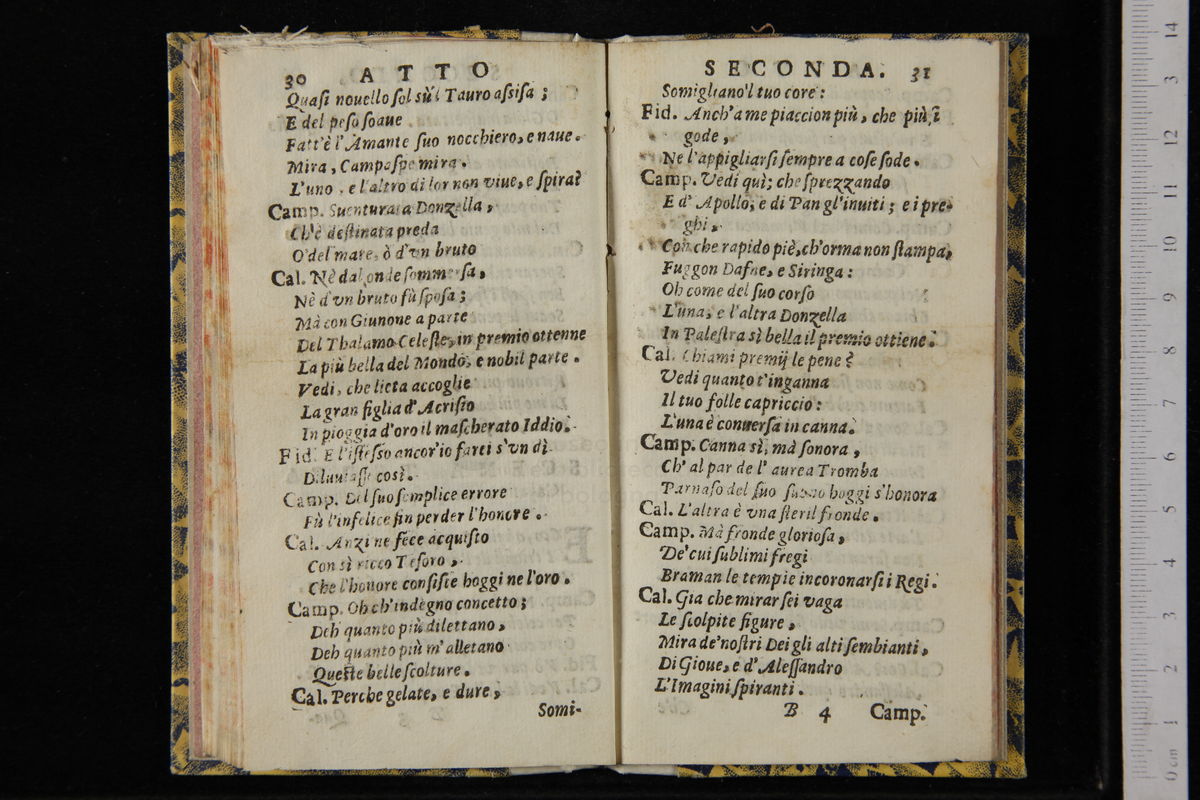 30 ATTO
Quaſi nouello ſol sù'l Tauro aſsiſa ;
E del peſo ſoaue
Fatt'è l'Amante ſuo nocchiero, e naue.
Mira, Campaſpe mira.
L'uno, e l'altro di lor non viue, e ſpira?
Camp. Suenturata Donzella,
Ch'è deſtinata preda
O del mare, ò d'vn bruto
Cal. Nè dal onde ſommerſa,
Nè d'vn bruto fù ſpoſa ;
Mà con Giunone a parte
Del Thalamo Celeſte, in premio ottenne
La più bella del Mondo, e nobil parte.
Vedi, che lieta accoglie
La gran figlia d'Acriſio
In pioggia d'oro il maſcherato Iddio.
Fid. E l'iſteſſo ancor'io farei s'vn dì
Diluuiaſſe così.
Camp. Del ſuo ſemplice errore
Fù l'infelice fin perder l'honore.
Cal. Anzi ne fece acquiſto
Con sì ricco Teſoro,
Che l'honore conſiſte hoggi ne l'oro.
Camp. Oh ch'indegno concetto ;
Deh quanto più dilettano,
Deh quanto più m'alletano
Queſte belle ſcolture.
Cal. Perche gelate, e dure,
Somi-
SECONDA. 31
Somigliano'l tuo core :
Fid. Anch'a me piaccion più, che più ſi
gode,
Ne l'appigliarſi ſempre a coſe ſode.
Camp. Vedi quì; che ſprezzando
E d'Apollo, e di Pan gl'inuiti ; e i pre-
ghi,
Con che rapido piè, ch'orma non ſtampa,
Fuggon Dafne, e Siringa :
Oh come del ſuo corſo
L'una, e l'altra Donzella
In Paleſtra sì bella il premio ottiene.
Cal. Chiami premij le pene ?
Vedi quanto t'inganna
Il tuo folle capriccio :
L'una è conuerſa in canna.
Camp. Canna sì, mà ſonora,
Ch' al par de l' aurea Tromba
Parnaſo del ſuo hoggi s'honora
Cal. L'altra è vna ſteril fronde.
Camp. Mà fronde glorioſa,
De' cui ſublimi fregi
Braman le tempie incoronarſi i Regi.
Cal. Gia che mirar ſei vaga
Le ſcolpite figure,
Mira de' noſtri Dei gli alti ſembianti,
Di Gioue, e d'Aleſſandro
L'Imagini ſpiranti.
B 4 Camp.